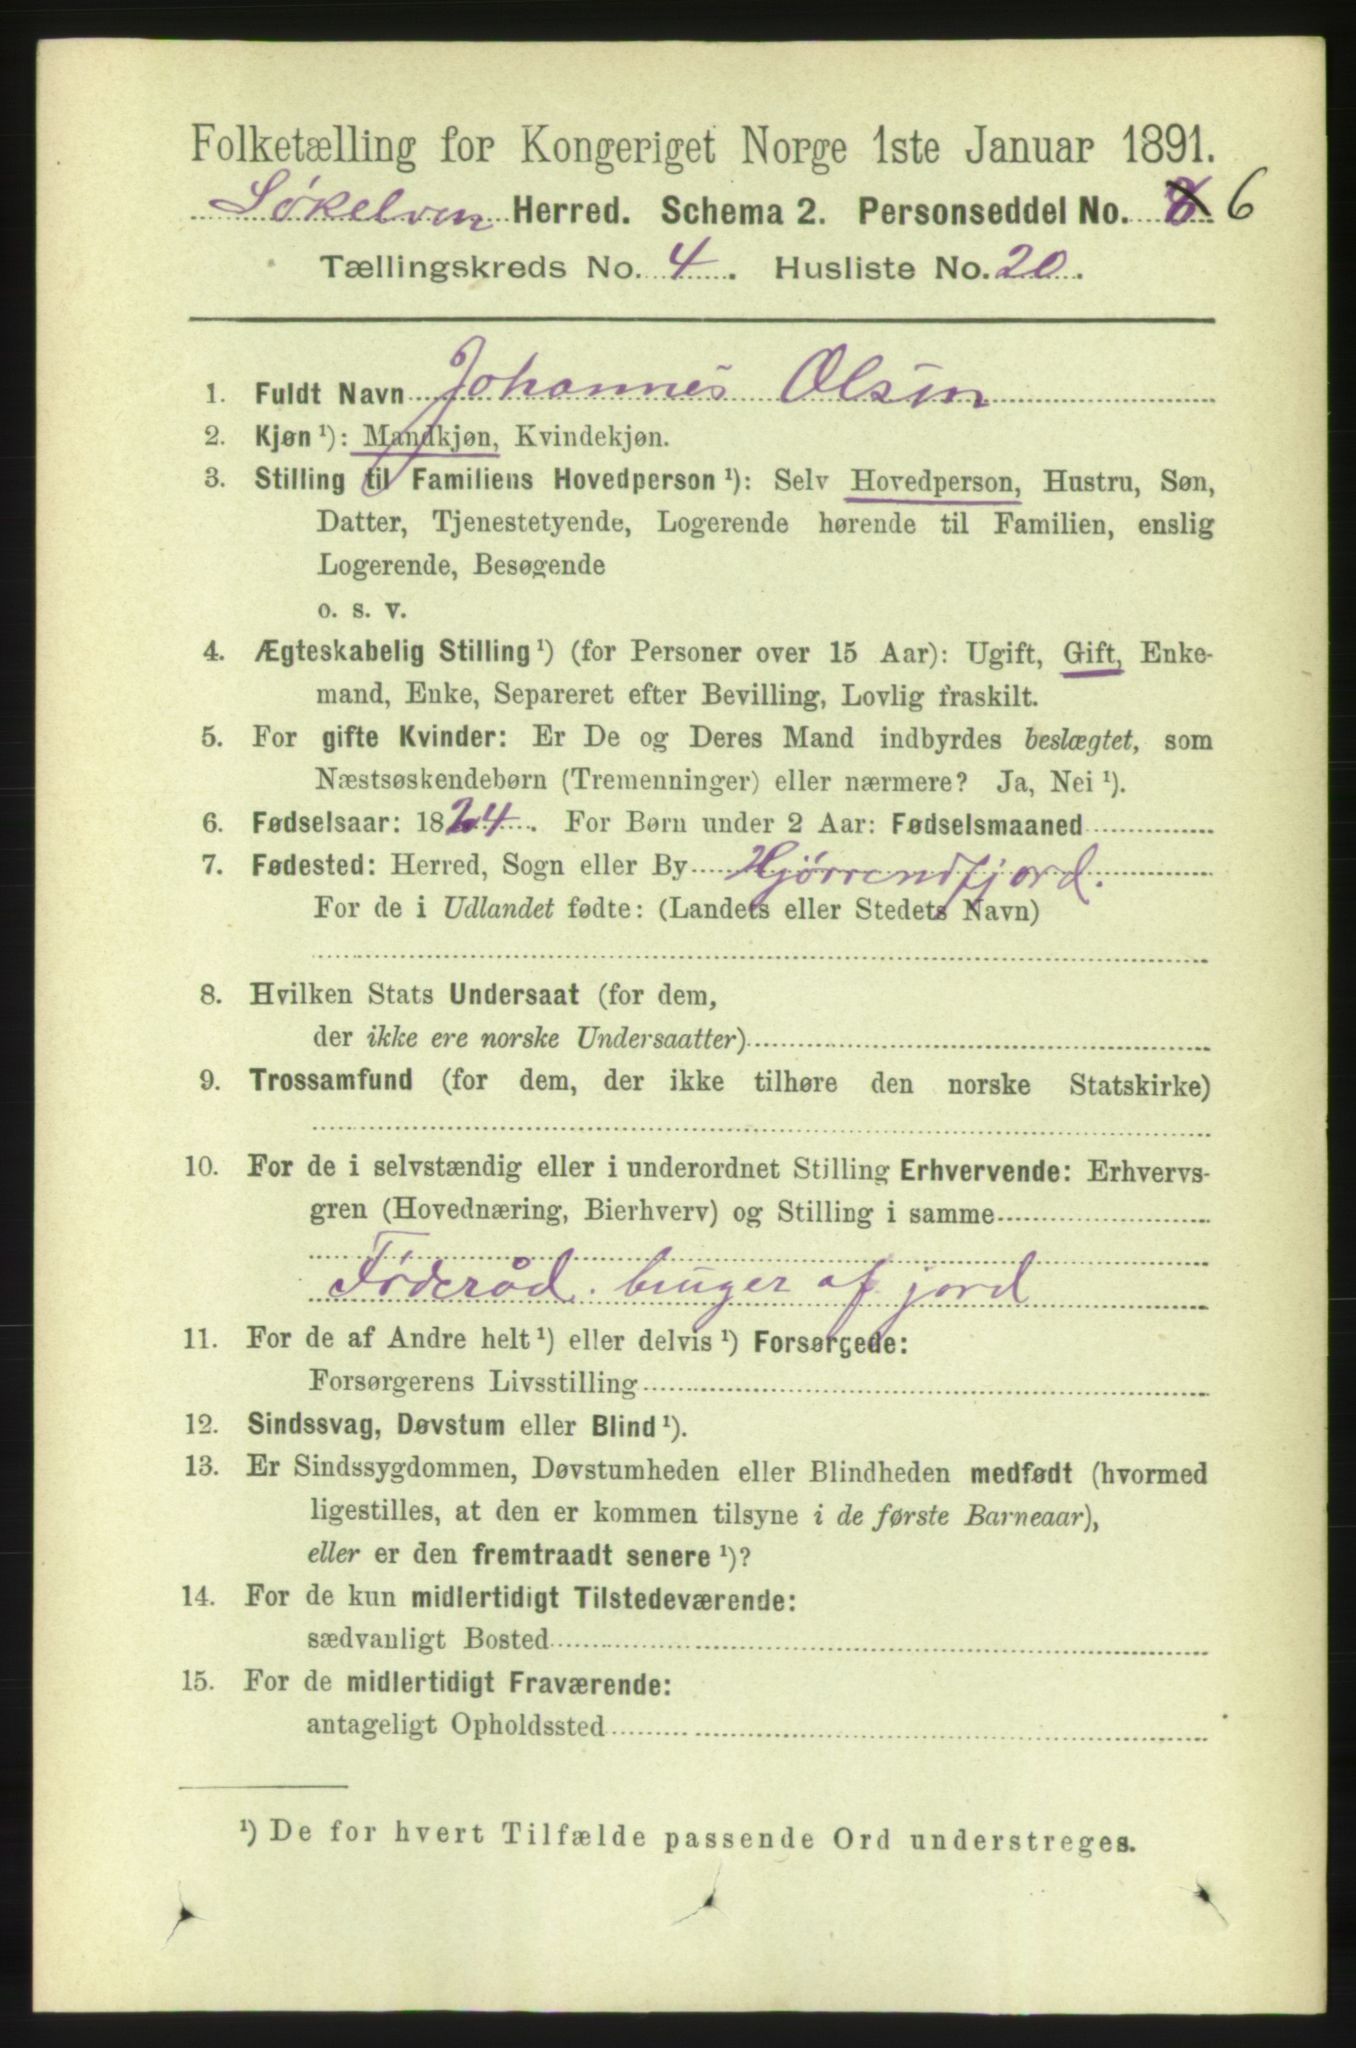 Folketælling for Kongeriget Norge 1ste Januar 1891.
Søkelven Herred. Schema 2. Personseddel No. 6
Tællingskreds No. 4. Husliste No. 20.
1. Fuldt Navn Johannes Olsen
2. Kjøn ¹): Mandkjøn, Kvindekjøn.
3. Stilling til Familiens Hovedperson ¹): Selv Hovedperson, Hustru, Søn,
Datter, Tjenestetyende, Logerende hørende til Familien, enslig
Logerende, Besøgende
o. s. v.
4. Ægteskabelig Stilling ¹) (for Personer over 15 Aar): Ugift, Gift, Enke-
mand, Enke, Separeret efter Bevilling, Lovlig fraskilt.
5. For gifte Kvinder: Er De og Deres Mand indbyrdes beslægtet, som
Næstsøskendebørn (Tremenninger) eller nærmere? Ja, Nei ¹).
6. Fødselsaar: 1824. For Børn under 2 Aar: Fødselsmaaned
7. Fødested: Herred, Sogn eller By Hjørrendfjord.
For de i Udlandet fødte: (Landets eller Stedets Navn)
8. Hvilken Stats Undersaat (for dem,
der ikke ere norske Undersaatter)
9. Trossamfund (for dem, der ikke tilhøre den norske Statskirke)
10. For de i selvstændig eller i underordnet Stilling Erhvervende: Erhvervs-
gren (Hovednæring, Bierhverv) og Stilling i samme
Föderåd. bruger af jord
11. For de af Andre helt ¹) eller delvis ¹) Forsørgede:
Forsørgerens Livsstilling
12. Sindssvag, Døvstum eller Blind ¹).
13. Er Sindssygdommen, Døvstumheden eller Blindheden medfødt (hvormed
ligestilles, at den er kommen tilsyne i de første Barneaar),
eller er den fremtraadt senere ¹)?
14. For de kun midlertidigt Tilstedeværende:
sædvanligt Bosted
15. For de midlertidigt Fraværende:
antageligt Opholdssted
¹) De for hvert Tilfælde passende Ord understreges.